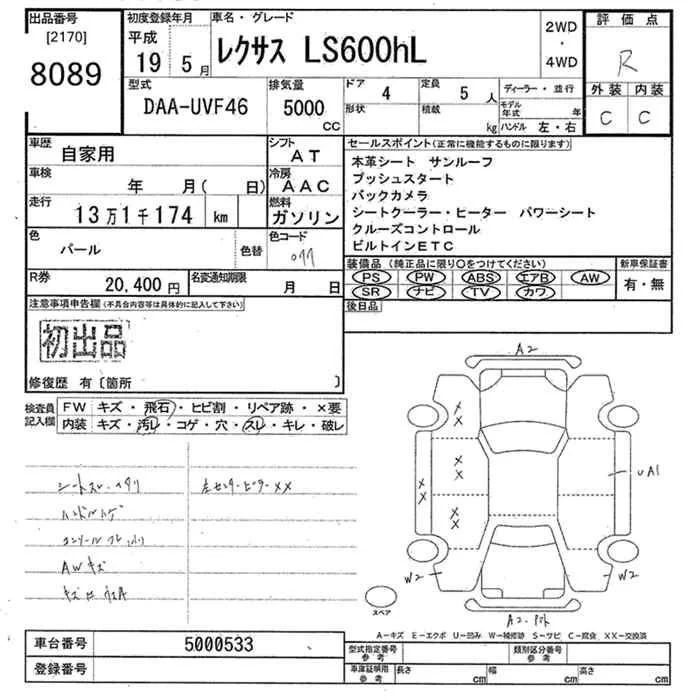 出品番号
[2170]
8089
初度登録年月
平成
19 5月
車名・グレード
レクサス LS600hL
2WD
・
4WD
評価点
R
外装 内装
C C
型式
DAA-UVF46
排気量
5000
CC
ドア 4
形状
定員 5 人
積載 kg
ディーラー・並行
モデル年式 年
ハンドル 左・右
車歴
自家用
シフト
AT
車検
年 月( 日)
冷房
AAC
走行
13万1千174 km
燃料
ガソリン
色
パール
色替
色コード
077
R券
20,400 円
名変通知期限
月 日
セールスポイント(正常に機能するものに限ります)
本革シート サンルーフ
プッシュスタート
バックカメラ
シートクーラー・ヒーター パワーシート
クルーズコントロール
ビルトインETC
装備品(純正品に限り○をつけてください)
新車保証書
PS PW ABS エアB AW
SR ナビ TV カワ
有・無
後日品
注意事項申告欄(不具合内容等は具体的に記入して下さい)
初出品
修復歴 有〔箇所 〕
検査員
記入欄
FW キズ・飛石・ヒビ割・リペア跡・×要
内装 キズ・汚レ・コゲ・穴・スレ・キレ・破レ
シートスレ・
ハンドルハゲ
コンソール
AWキズ
左センターピラーXX
A2
X
X
X
X
X
X
X
X
UA1
W2
W2
スペア
A2・
A－キズ E－エクボ U－凹み W－補修跡 S－サビ C－腐食 XX－交換済
車台番号
5000533
登録番号
型式指定番号
参考
類別区分番号
参考
車庫証明用
参考
長さ cm
幅 cm
高さ cm